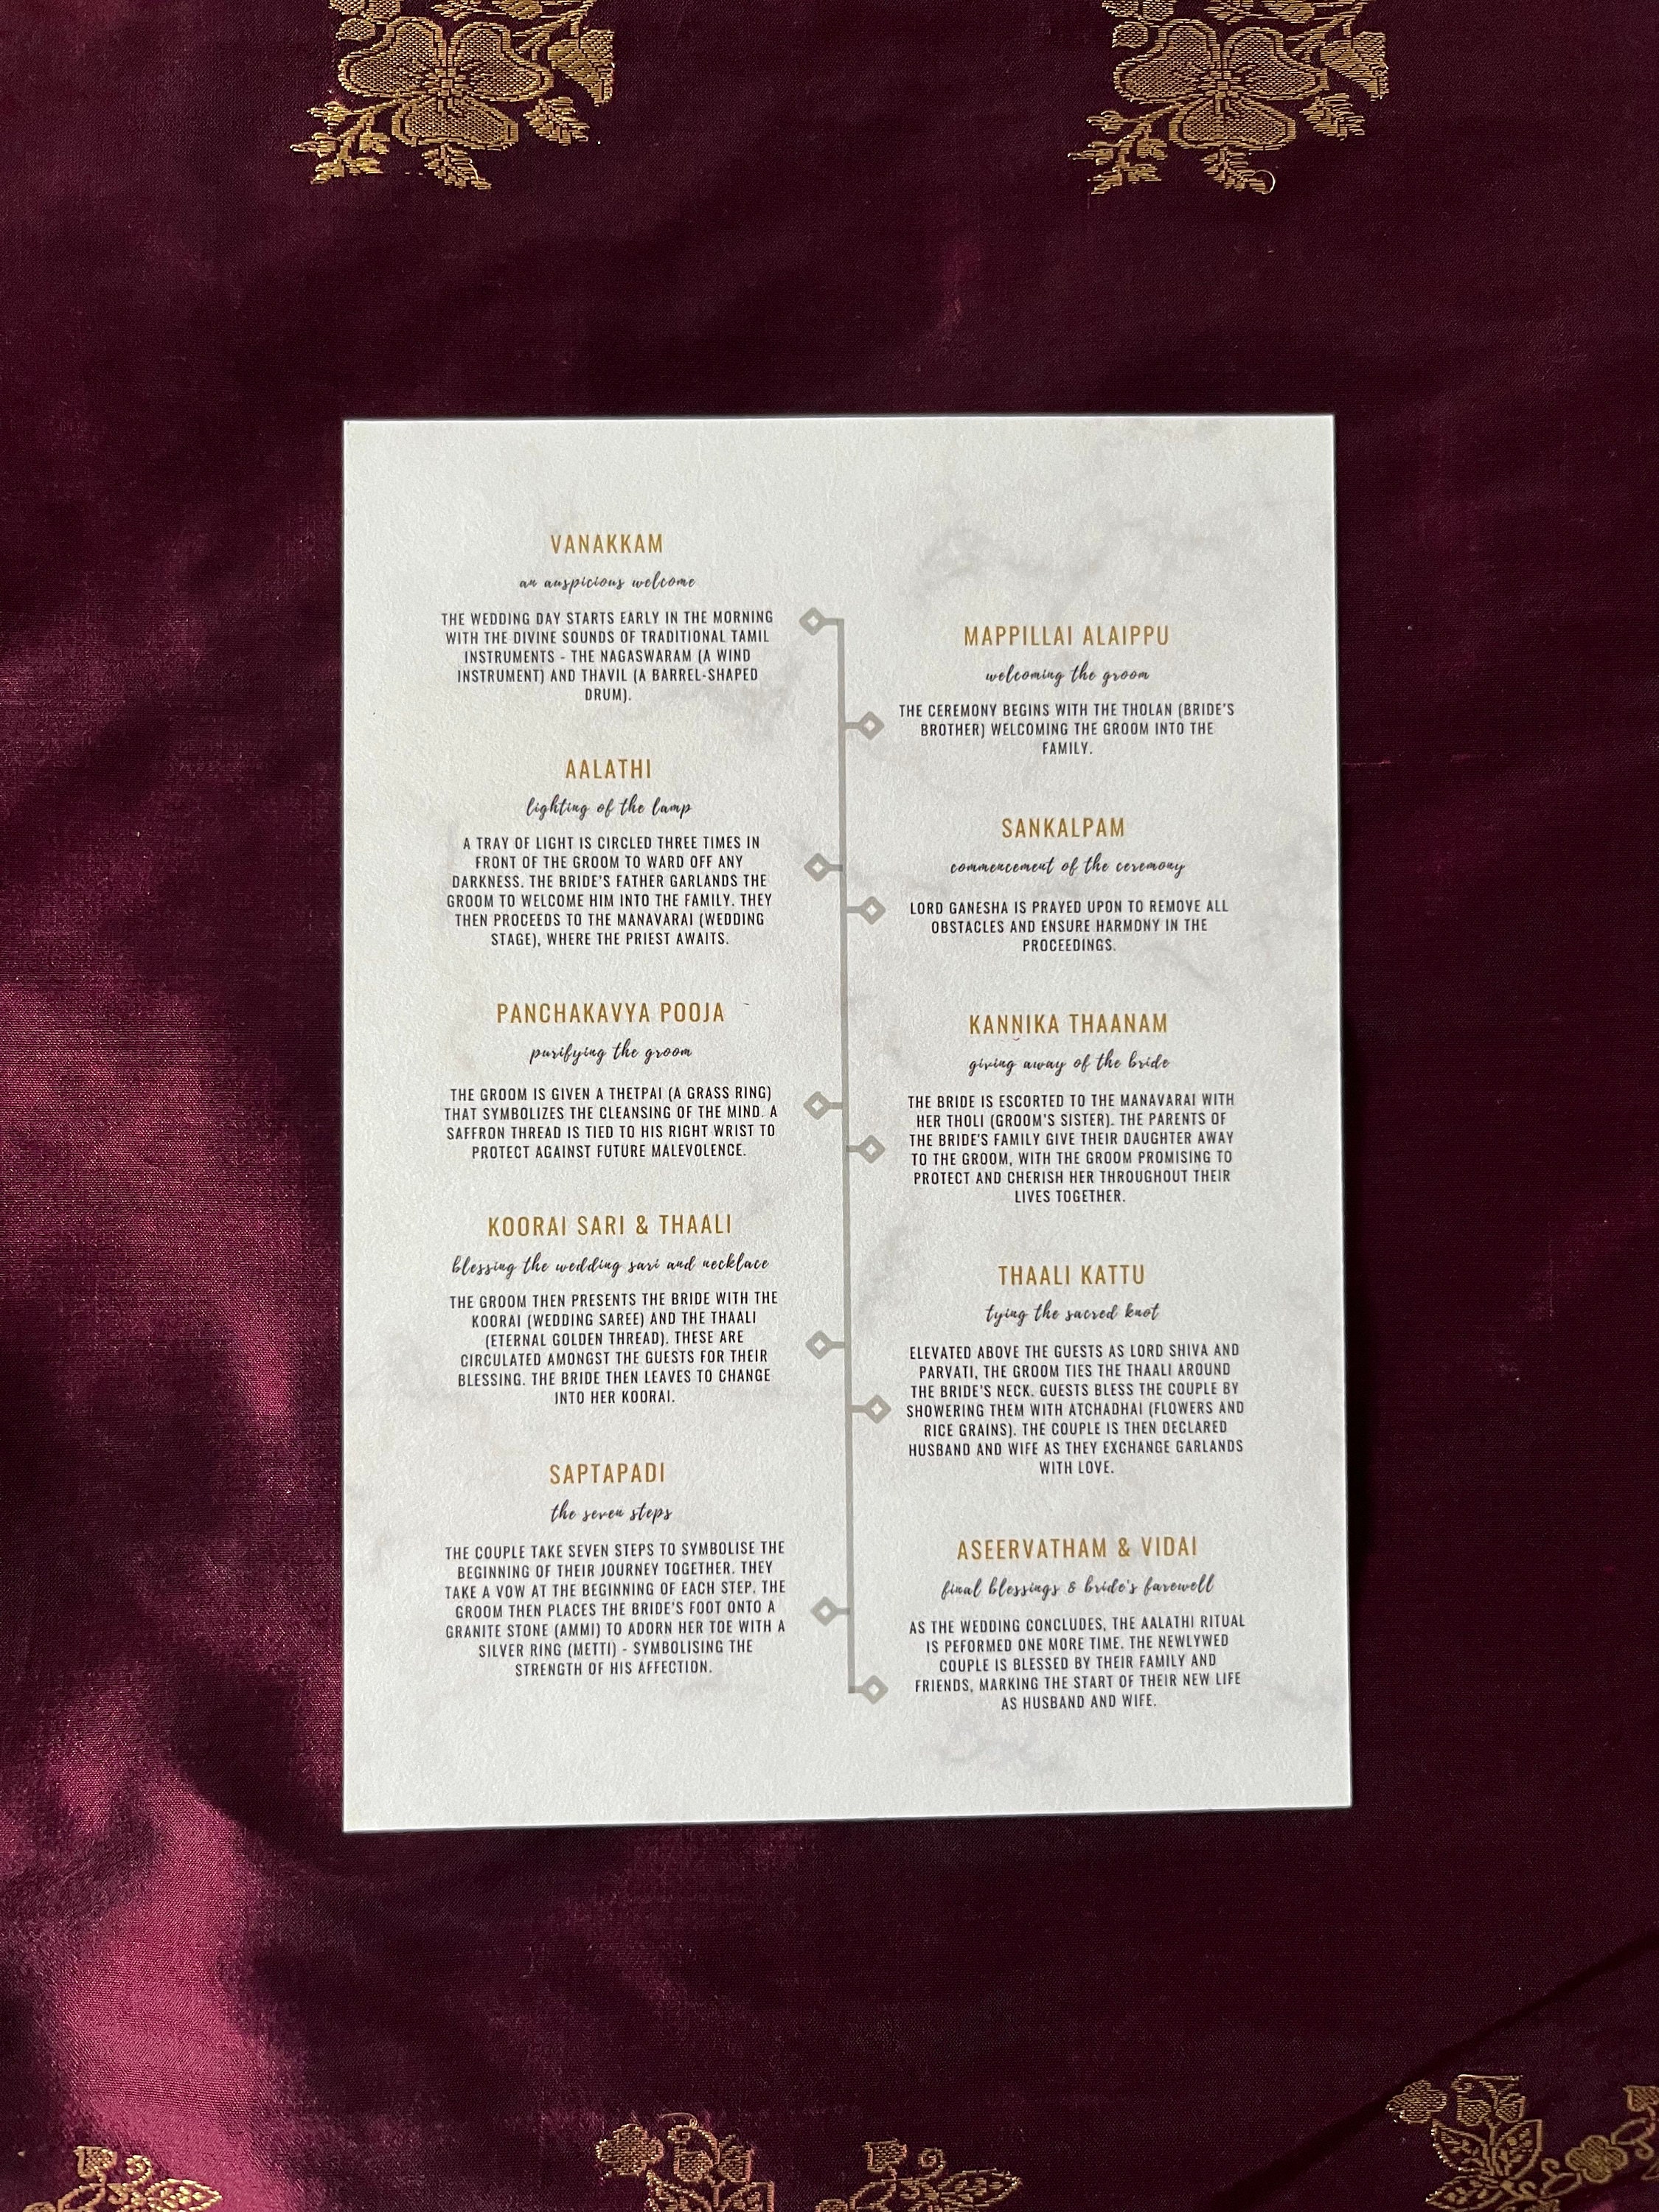 VANAKKAM
an auspicious welcome
THE WEDDING DAY STARTS EARLY IN THE MORNING
WITH THE DIVINE SOUNDS OF TRADITIONAL TAMIL
INSTRUMENTS - THE NAGASWARAM (A WIND
INSTRUMENT) AND THAVIL (A BARREL-SHAPED
DRUM).
MAPPILLAI ALAIPPU
welcoming the groom
THE CEREMONY BEGINS WITH THE THOLAN (BRIDE'S
BROTHER) WELCOMING THE GROOM INTO THE
FAMILY.
AALATHI
lighting of the lamp
A TRAY OF LIGHT IS CIRCLED THREE TIMES IN
FRONT OF THE GROOM TO WARD OFF ANY
DARKNESS. THE BRIDE'S FATHER GARLANDS THE
GROOM TO WELCOME HIM INTO THE FAMILY. THEY
THEN PROCEEDS TO THE MANAVARAI (WEDDING
STAGE), WHERE THE PRIEST AWAITS.
SANKALPAM
commencement of the ceremony
LORD GANESHA IS PRAYED UPON TO REMOVE ALL
OBSTACLES AND ENSURE HARMONY IN THE
PROCEEDINGS.
PANCHAKAVYA POOJA
purifying the groom
THE GROOM IS GIVEN A THETPAI (A GRASS RING)
THAT SYMBOLIZES THE CLEANSING OF THE MIND. A
SAFFRON THREAD IS TIED TO HIS RIGHT WRIST TO
PROTECT AGAINST FUTURE MALEVOLENCE.
KANNIKA THAANAM
giving away of the bride
THE BRIDE IS ESCORTED TO THE MANAVARAI WITH
HER THOLI (GROOM'S SISTER). THE PARENTS OF
THE BRIDE'S FAMILY GIVE THEIR DAUGHTER AWAY
TO THE GROOM, WITH THE GROOM PROMISING TO
PROTECT AND CHERISH HER THROUGHOUT THEIR
LIVES TOGETHER.
KOORAI SARI & THAALI
blessing the wedding sari and necklace
THE GROOM THEN PRESENTS THE BRIDE WITH THE
KOORAI (WEDDING SAREE) AND THE THAALI
(ETERNAL GOLDEN THREAD). THESE ARE
CIRCULATED AMONGST THE GUESTS FOR THEIR
BLESSING. THE BRIDE THEN LEAVES TO CHANGE
INTO HER KOORAI.
THAALI KATTU
tying the sacred knot
ELEVATED ABOVE THE GUESTS AS LORD SHIVA AND
PARVATI, THE GROOM TIES THE THAALI AROUND
THE BRIDE'S NECK. GUESTS BLESS THE COUPLE BY
SHOWERING THEM WITH ATCHADHAI (FLOWERS AND
RICE GRAINS). THE COUPLE IS THEN DECLARED
HUSBAND AND WIFE AS THEY EXCHANGE GARLANDS
WITH LOVE.
SAPTAPADI
the seven steps
THE COUPLE TAKE SEVEN STEPS TO SYMBOLISE THE
BEGINNING OF THEIR JOURNEY TOGETHER. THEY
TAKE A VOW AT THE BEGINNING OF EACH STEP. THE
GROOM THEN PLACES THE BRIDE'S FOOT ONTO A
GRANITE STONE (AMMI) TO ADORN HER TOE WITH A
SILVER RING (METTI) - SYMBOLISING THE
STRENGTH OF HIS AFFECTION.
ASEERVATHAM & VIDAI
final blessings & bride's farewell
AS THE WEDDING CONCLUDES, THE AALATHI RITUAL
IS PEFORMED ONE MORE TIME. THE NEWLYWED
COUPLE IS BLESSED BY THEIR FAMILY AND
FRIENDS, MARKING THE START OF THEIR NEW LIFE
AS HUSBAND AND WIFE.